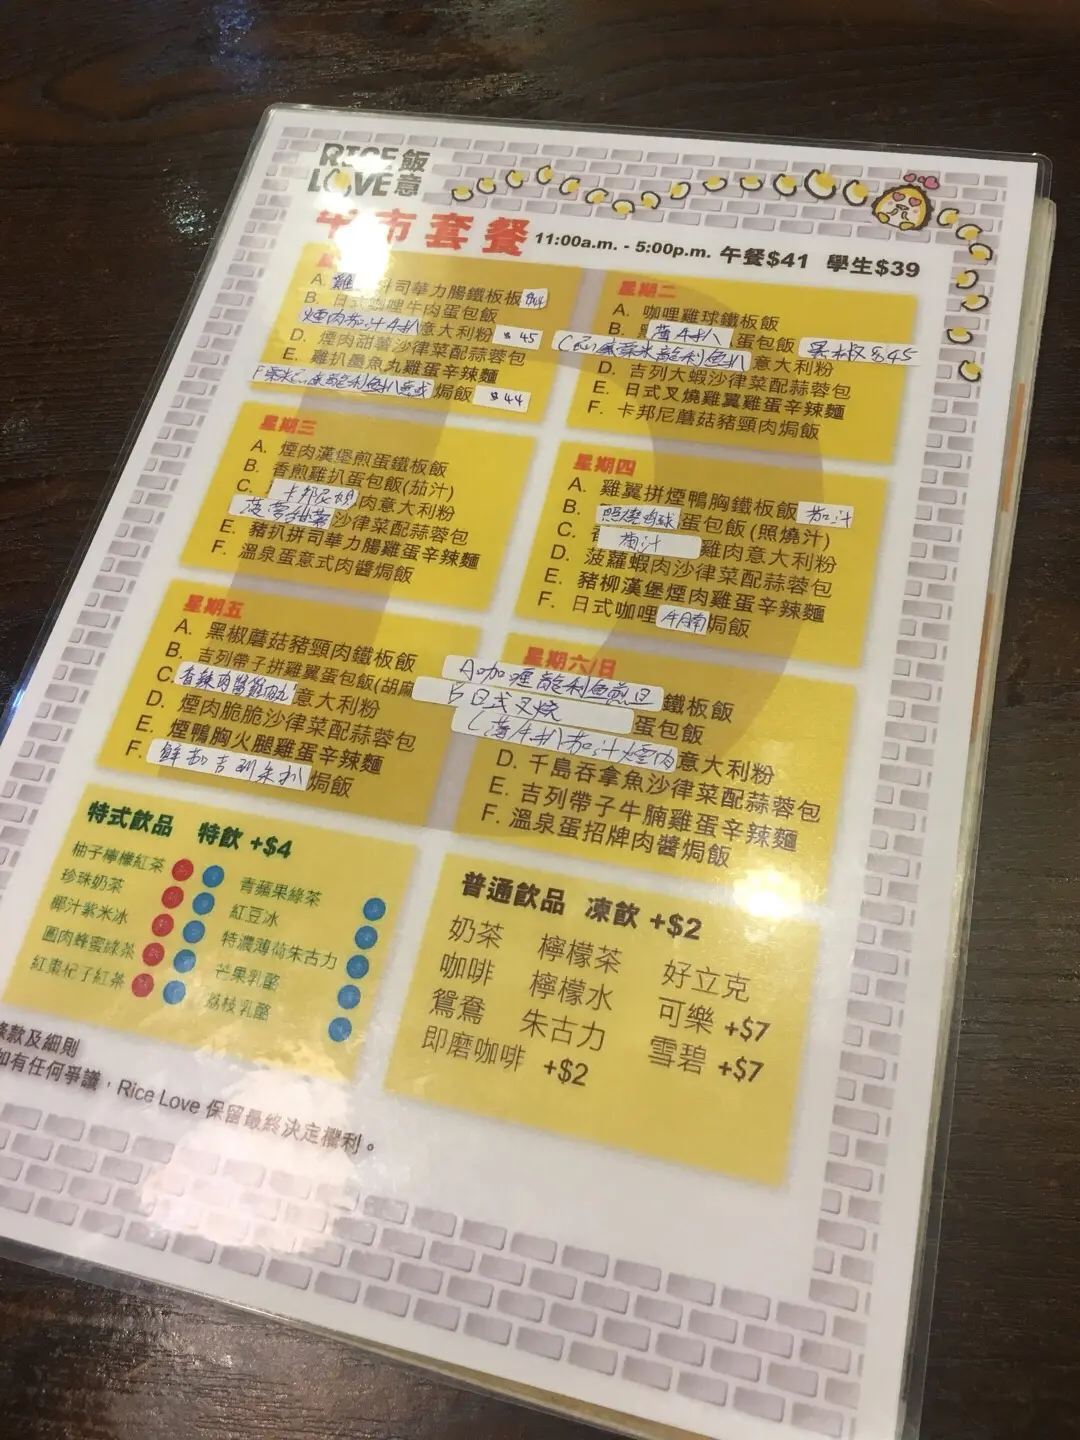 RICE 飯
LOVE 意
午市套餐 11:00a.m. - 5:00p.m. 午餐$41 學生$39
A. 雞 司華力腸鐵板 $44
B. 日式咖哩牛肉蛋包飯
煙肉茄汁 意大利粉 $45
D. 煙肉甜薯沙律菜配蒜蓉包
E. 雞扒墨魚丸雞蛋辛辣麵
F 龍利魚扒 焗飯 $44
星期二
A. 咖哩雞球鐵板飯
B. 蛋包飯 黑椒 $45
C 粟米龍利魚扒 意大利粉
D. 吉列大蝦沙律菜配蒜蓉包
E. 日式叉燒雞翼雞蛋辛辣麵
F. 卡邦尼蘑菇豬頸肉焗飯
星期三
A. 煙肉漢堡煎蛋鐵板飯
B. 香煎雞扒蛋包飯(茄汁)
C. 卡邦尼 肉意大利粉
菠蘿甜薯 沙律菜配蒜蓉包
E. 豬扒拼司華力腸雞蛋辛辣麵
F. 溫泉蛋意式肉醬焗飯
星期四
A. 雞翼拼煙鴨胸鐵板飯 茄汁
B. 照燒 蛋包飯 (照燒汁)
C. 汁 雞肉意大利粉
D. 菠蘿蝦肉沙律菜配蒜蓉包
E. 豬柳漢堡煙肉雞蛋辛辣麵
F. 日式咖哩 牛腩 焗飯
星期五
A. 黑椒蘑菇豬頸肉鐵板飯
B. 吉列帶子拼雞翼蛋包飯(胡麻
C. 香辣肉醬 意大利粉
D. 煙肉脆脆沙律菜配蒜蓉包
E. 煙鴨胸火腿雞蛋辛辣麵
F. 鮮茄吉列 扒 焗飯
星期六/日
A 咖喱龍利魚煎旦 鐵板飯
B 日式叉燒 蛋包飯
C 扒茄汁煙肉 意大利粉
D. 千島吞拿魚沙律菜配蒜蓉包
E. 吉列帶子牛腩雞蛋辛辣麵
F. 溫泉蛋招牌肉醬焗飯
特式飲品 特飲 +$4
柚子檸檬紅茶
珍珠奶茶
椰汁紫米冰
圓肉蜂蜜綠茶
紅棗杞子紅茶
青蘋果綠茶
紅豆冰
特濃薄荷朱古力
芒果乳酪
荔枝乳酪
普通飲品 凍飲 +$2
奶茶 檸檬茶 好立克
咖啡 檸檬水 可樂 +$7
鴛鴦 朱古力 雪碧 +$7
即磨咖啡 +$2
條款及細則
如有任何爭議，Rice Love 保留最終決定權利。